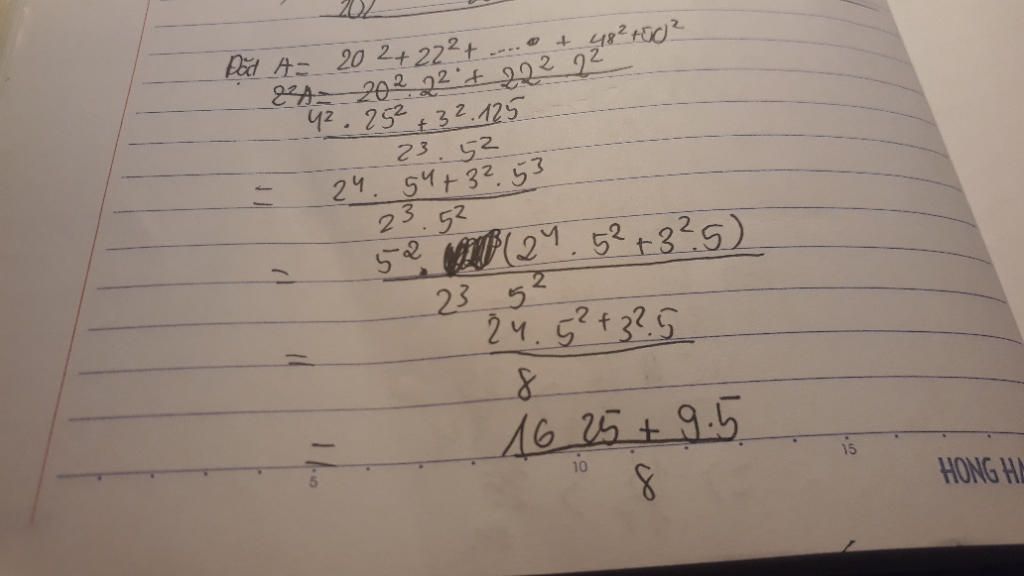 Đặt A = 20² + 22² + ..... + 48² + 50²
2²A = 20² . 2² + 22² 2²
4² . 25² + 3² . 125
2³ . 5²
= 2⁴ . 5⁴ + 3² . 5³
2³ . 5²
= 5² . (2⁴ . 5² + 3² . 5)
2³ 5²
= 2⁴ . 5² + 3² . 5
8
= 16 25 + 9 . 5
8
5 10 15